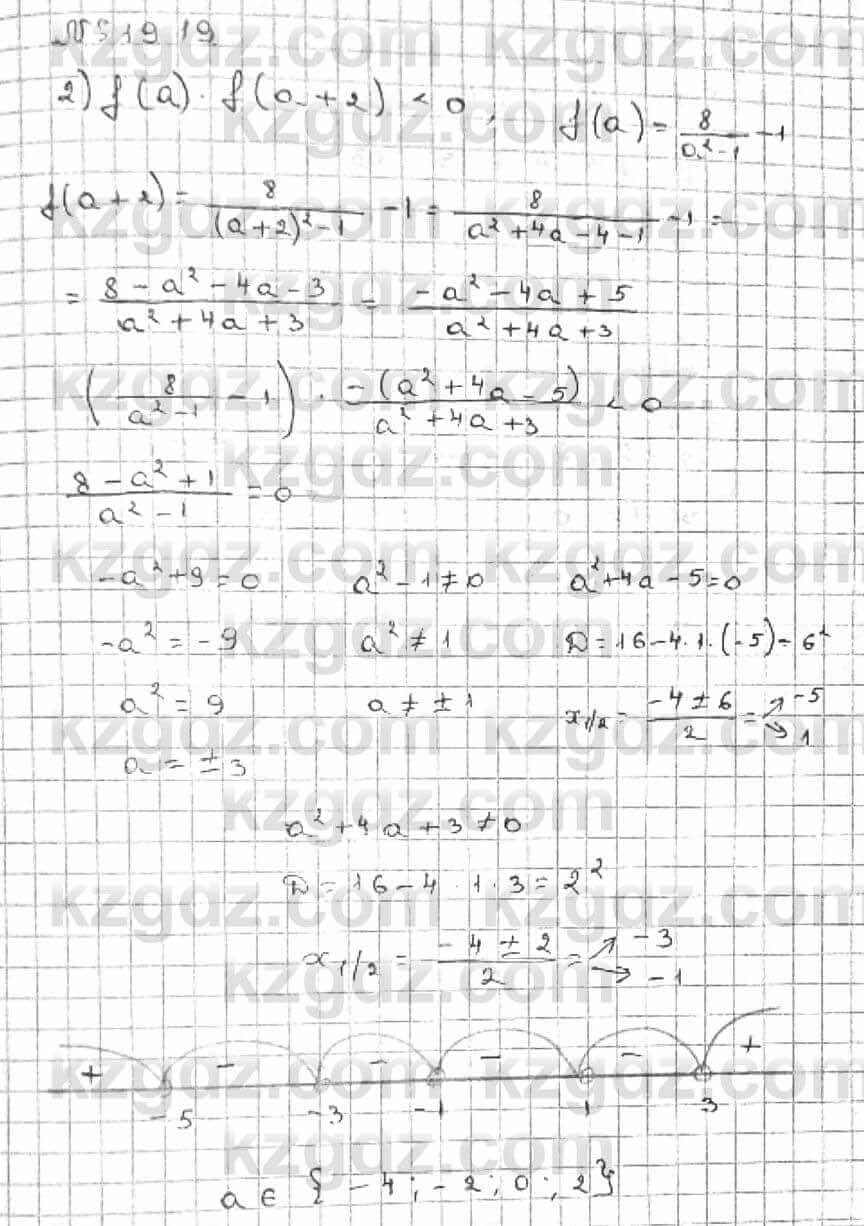 № 519 19
2) f(a) · f(a+2) < 0, f(a) = 8/(a²-1) - 1
f(a+2) = 8/((a+2)²-1) - 1 = 8/(a²+4a-4-1) - 1 =
= (8-a²-4a-3)/(a²+4a+3) = (-a²-4a+5)/(a²+4a+3)
(8/(a²-1) - 1) · (-(a²+4a-5))/(a²+4a+3) < 0
(8-a²+1)/(a²-1) = 0
-a²+9=0 a²-1≠0 a²+4a-5=0
-a² = -9 a² ≠ 1 D = 16-4·1·(-5) = 6²
a² = 9 a ≠ ±1 x₁/₂ = (-4±6)/2 = ↗ -5 ↘ 1
a = ±3
a²+4a+3≠0
D = 16-4·1·3 = 2²
x₁/₂ = (-4±2)/2 = ↗ -3 → -1
+ - - - - +
-5 -3 -1 1 3
a ∈ {-4; -2; 0; 2}
kzgdz.com